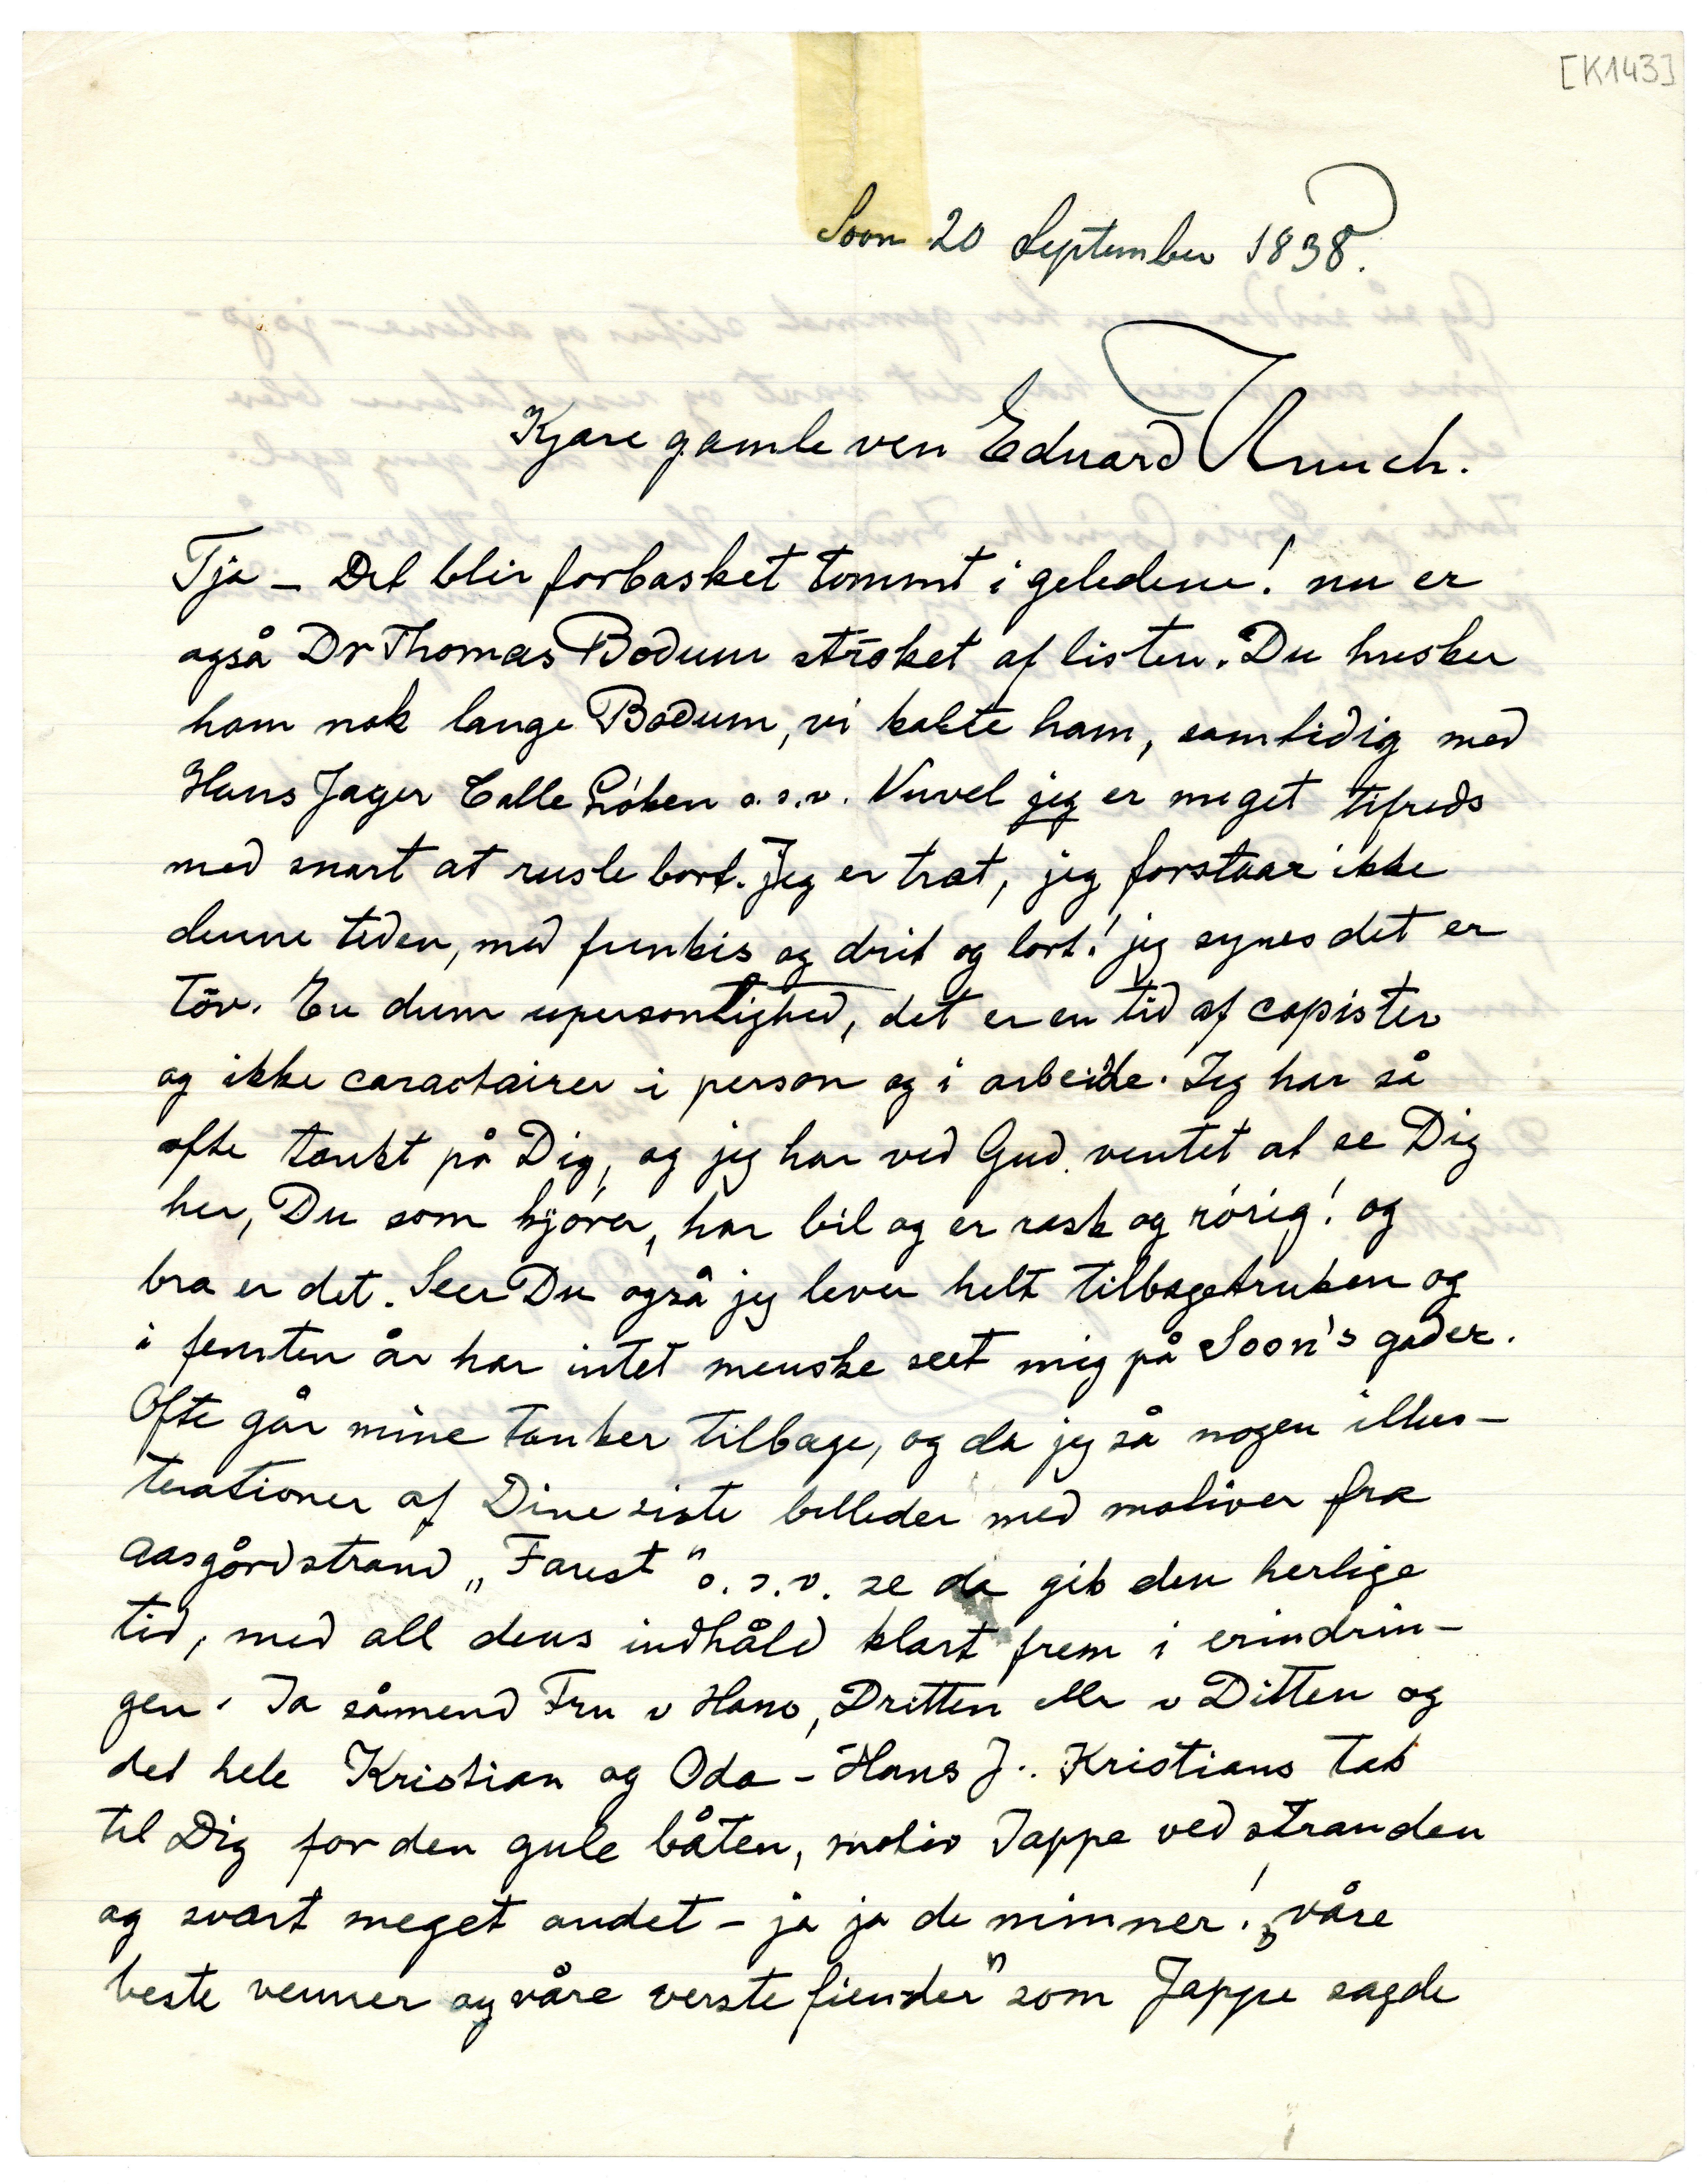 [K143]
Soon 20 September 1838.
Kjære gamle ven Edvard Munch.
Tja – Det blir forbasket tommt i geledene! nu er
også Dr Thomas Bodum strøket af listen. Du husker
ham nok lange Bodum, vi kalte ham, samtidig med
Hans Jæger Calle Løken o.s.v. Nuvel jeg er meget tifreds
med snart at rusle bort. Jeg er træt, jeg forstaar ikke
denne tiden, med funkis og drit og lort! jeg synes det er
töv. En dum upersonlighed, det er en tid af copister
og ikke caractairer i person og i arbeide. Jeg har så
ofte tænkt på Dig, og jeg har ved Gud ventet at se Dig
her, Du som kjører, har bil og er rask og rørig! og
bra er det. Seer Du også jeg lever helt tilbagetruken og
i femten år har intet menske seet mig på Soon's gader.
Ofte går mine tanker tilbage, og da jeg så nogen illus–
terationer af Dine siste billeder med motiver fra
Aasgårdstrand „Faust" o.s.v. se da gik den herlige
tid, med all dens indhåld klart frem i erindrin–
gen. Ja såmend Fru v Hano, Dritten eller v Ditten og
det hele Kristian og Oda – Hans J.. Kristians tak
til Dig for den gule båten, motiv Jappe ved stranden
og svært meget andet – ja ja de minner! „våre
beste venner og våre verste fiender" som Jappe sagde